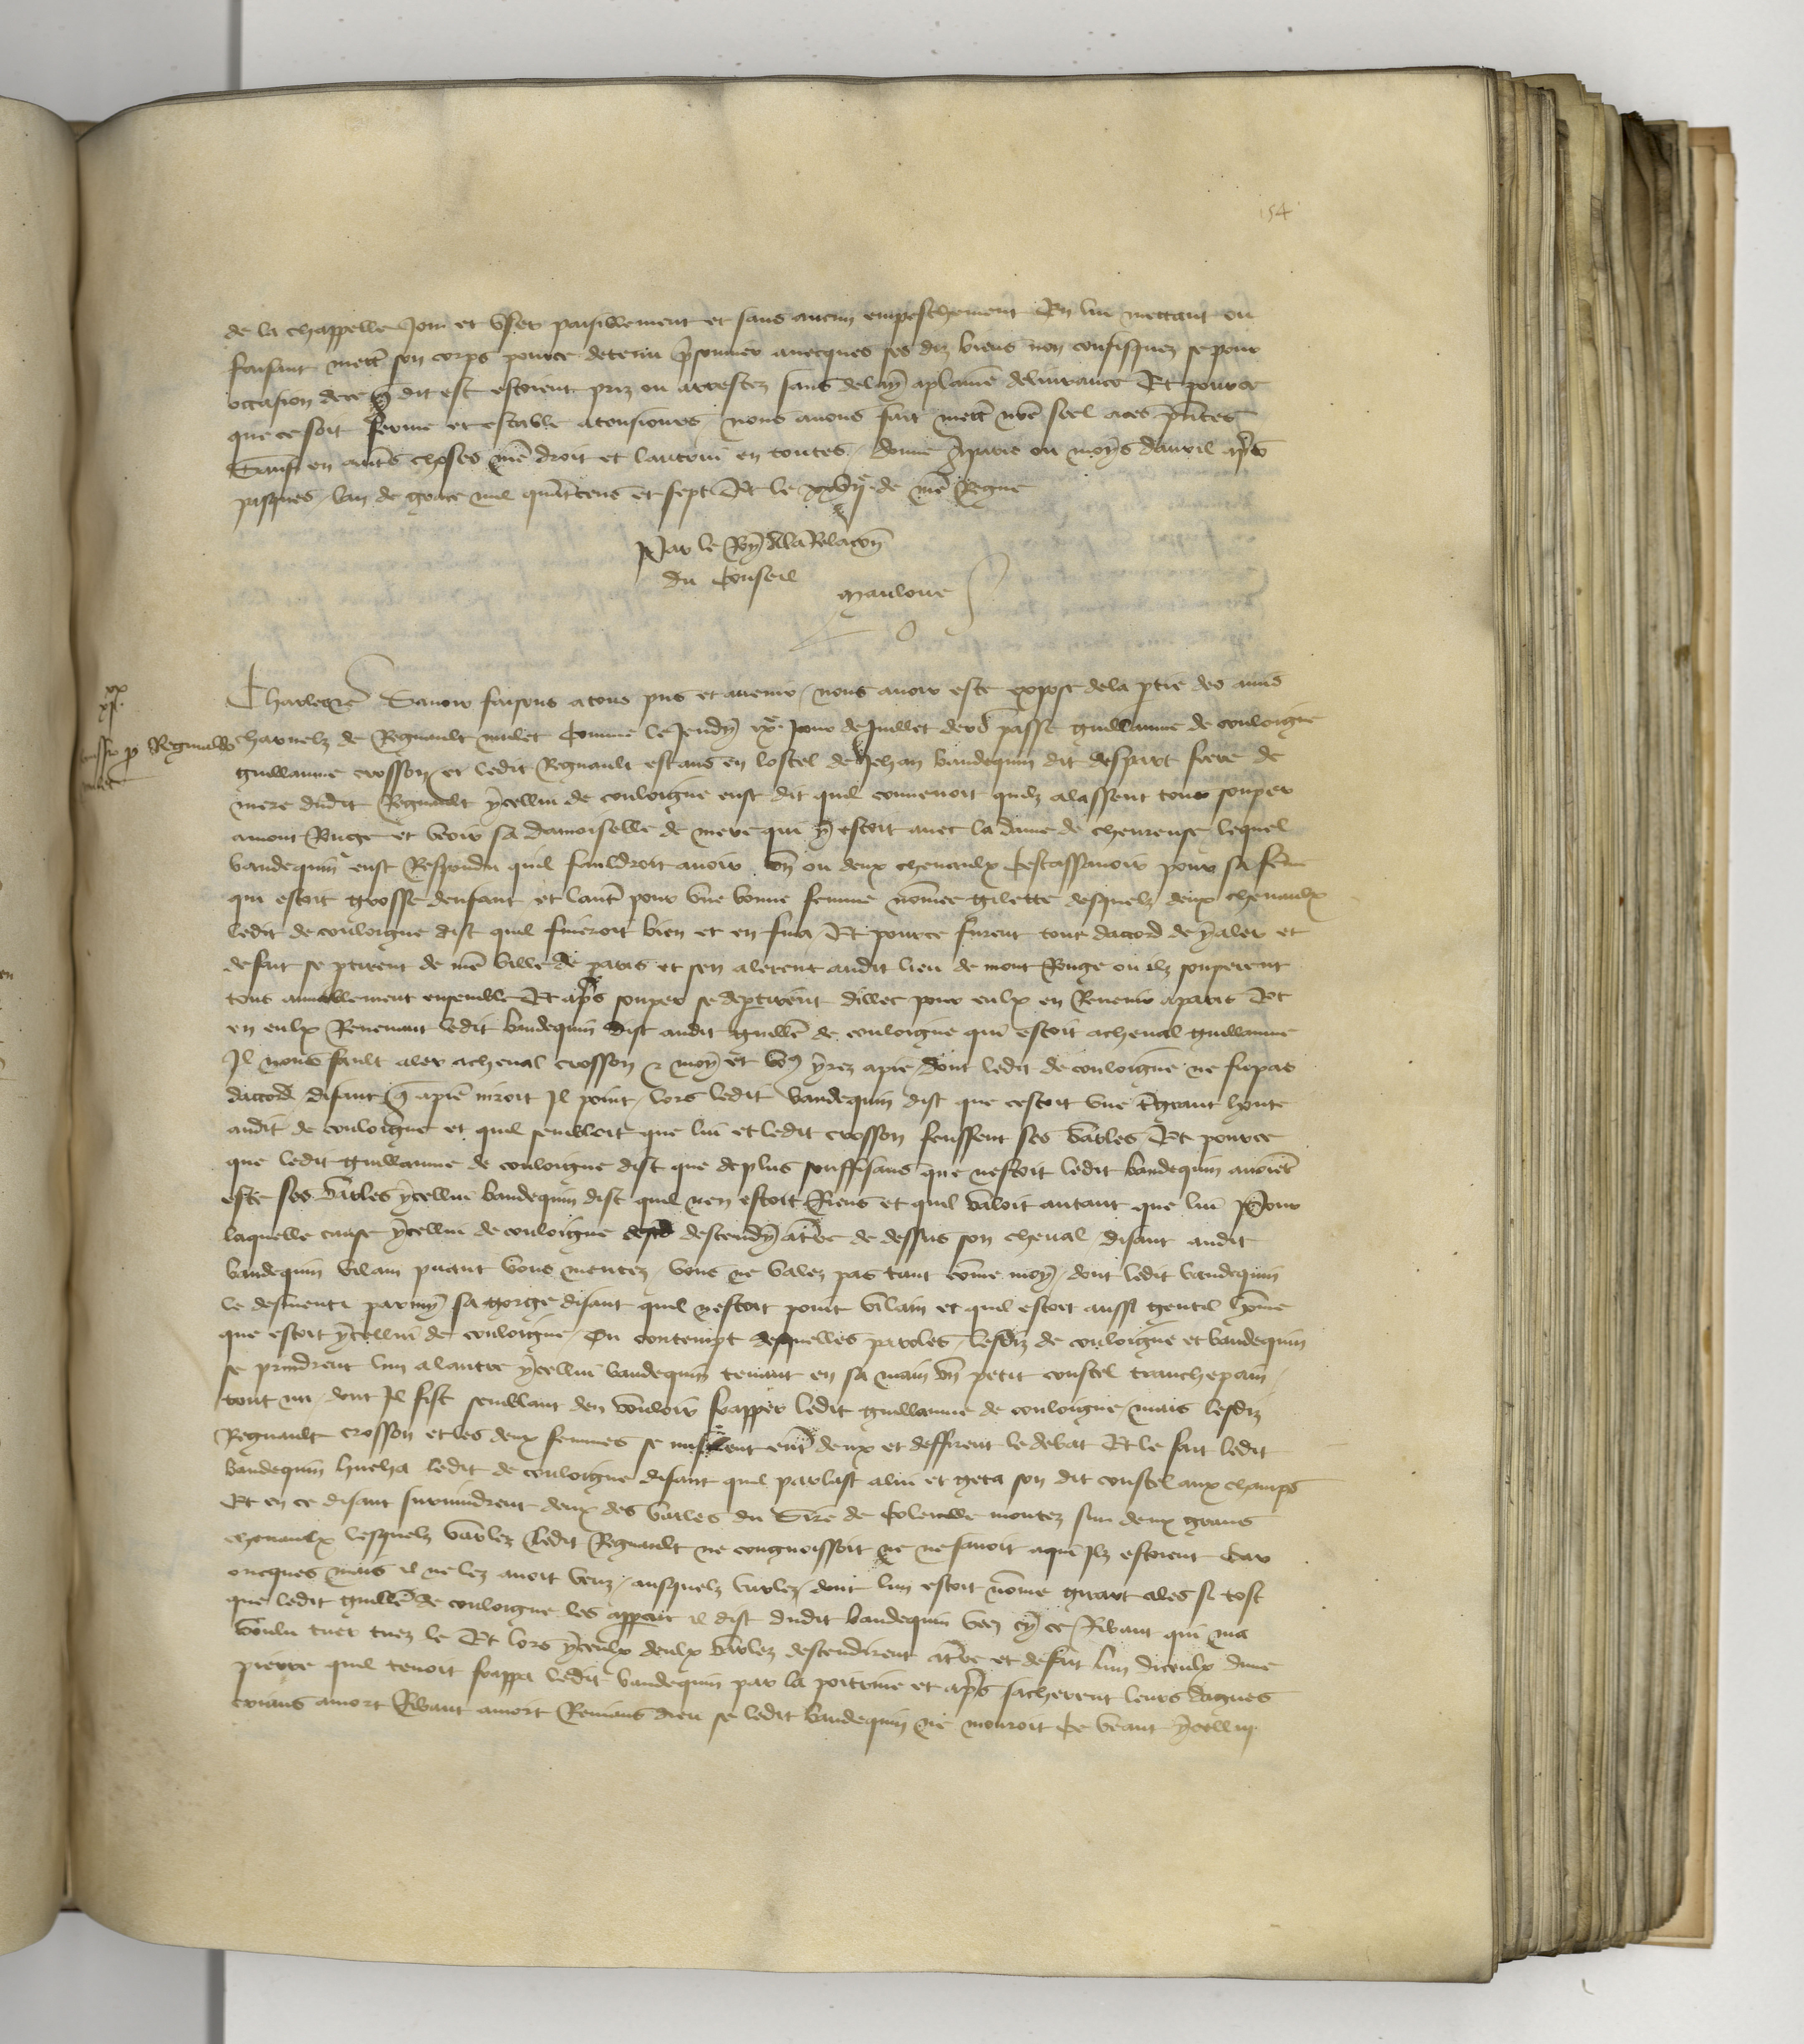 154
de la chappelle Joir et user paisiblement et sans aucun empeschement En lui mettant ou
faisant mett͛ son corps pource detenu p͛sonnier avecques ses diz biens non confisquez se pour
occasion de ce q̃ dit est estoient priz ou arrestez sans delay a plaine delivrance Et pource
que ce soit ferme et estable a tousiours nous avons fait mett͛ nr̃e seel a ces pñtes
Sauf en aut͛s choses nr̃e droit et lautrui en toutes. donne a paris ou moys davril ap͛s
pasques lan de grace mil quat͛cens et sept Et le xxvijᵉ de nr̃e Regne
Par le Roy a la Relacoñ
du Conseil
Mauloue
xx
xj.
Charles &c̃ Savoir faisons a tous pñs et avenir nous avoir este expose de la p͛tie des amis
Remissio p Reginaldo
milet
charnelz de Regnault milet Comme le Jeudy xxᵉ Jour de Juillet derr̃ passe guillaume de couloigne
guillaume crosson et ledit Regnault estans en lostel de Jehan baudequin dit despart frere de
mere dudit Regnault ycellui de couloigne eust dit quil convenoit quilz alassent tous souper
a mont Ruge et veoir sa damoiselle de mere qui y estoit avec la dame de chevreuse lequel
baudequin eust Respondu quil fauldroit avoir un ou deux chevaulx Cestassavoir pour sa fem̃e
qui estoit grosse denfant et laut͛ pour une bonne femme nom̃ee gilette desquelz deux chevaulx
ledit de couloigne dist quil fineroit bien et en fina Et pource furent tous daccord de y aler et
de fait se p͛tirent de nr̃e ville de paris et sen alerent audit lieu de mont Rouge ou ilz souperent
tous amiablement ensemble Et ap͛s souper se dep͛tirent dillec pour eulx en Revenir a paris Et
en eulx Revenant ledit baudequin dist audit guillẽ de couloigne qui estoit a cheval guillaume
Il nous fault aler a cheval crosson & moy et voꝰ yrez a pie dont ledit de couloigne ne fu pas
daccord disant q̃ a pie niroit Il point lors ledit baudequin dist que cestoit une t͛sgrant honte
audit de couloigne et quil sembleit que lui et ledit crosson feussent ses varles Et pource
que ledit guillaume de couloigne dist que de plus souffisans que nestoit ledit baudequin avoiẽt
este ses varles ycellui baudequin dist quil nen estoit Riens et quil valoit autant que lui Pour
laquelle cause ycellui de couloigne descendy a t͛re de dessus son cheval disant audit
baudequin vilain puant vous mentez vous ne valez pas tant com̃e moy dont ledit baudequin
le desmenti parmy sa gorge disant quil nestoit point vilain et quil estoit aussi gentil hom̃e
que estoit ycellui de couloigne Ou contempt desquelles paroles lesdiz de couloigne et baudequin
se prindrent lun a lautre ycellui baudequin tenant en sa main un petit coustel tranchepain
tout nu dont Il fist semblant den vouloir frapper ledit guillaume de couloigne mais lesdiz
Regnault crosson et les deux femmes se misrent ent͛ deux et deffirent le debat Et ce fait ledit
baudequin hucha ledit de couloigne disant quil parlast a lui et geta son dit coustel aux champs
Et en ce disant survindrent deux des varles du Sire de Coleville montez sur deux grans
chevaulx lesquelz varlez ledit Regnault ne congnoissoit ne ne savoit a qui Ilz estoient Car
oncques mais il ne lez avoit veuz ausquelz varlez dont lun estoit nom̃e girart ales si tost
que ledit guillẽ de couloigne les apperceut il dist dudit baudequin veez cy ce Ribaut qui ma
voulu tuer tuez le Et lors yceulx deulx varlez descendirent a t͛re et de fait lun diceulx dune
pierre quil tenoit frappa ledit baudequin par la poitrine et ap͛s sacherent leurs dagues
crians a mort Ribaut a mort Renians dieu se ledit baudequin ne mouroit Ce veant ycellui